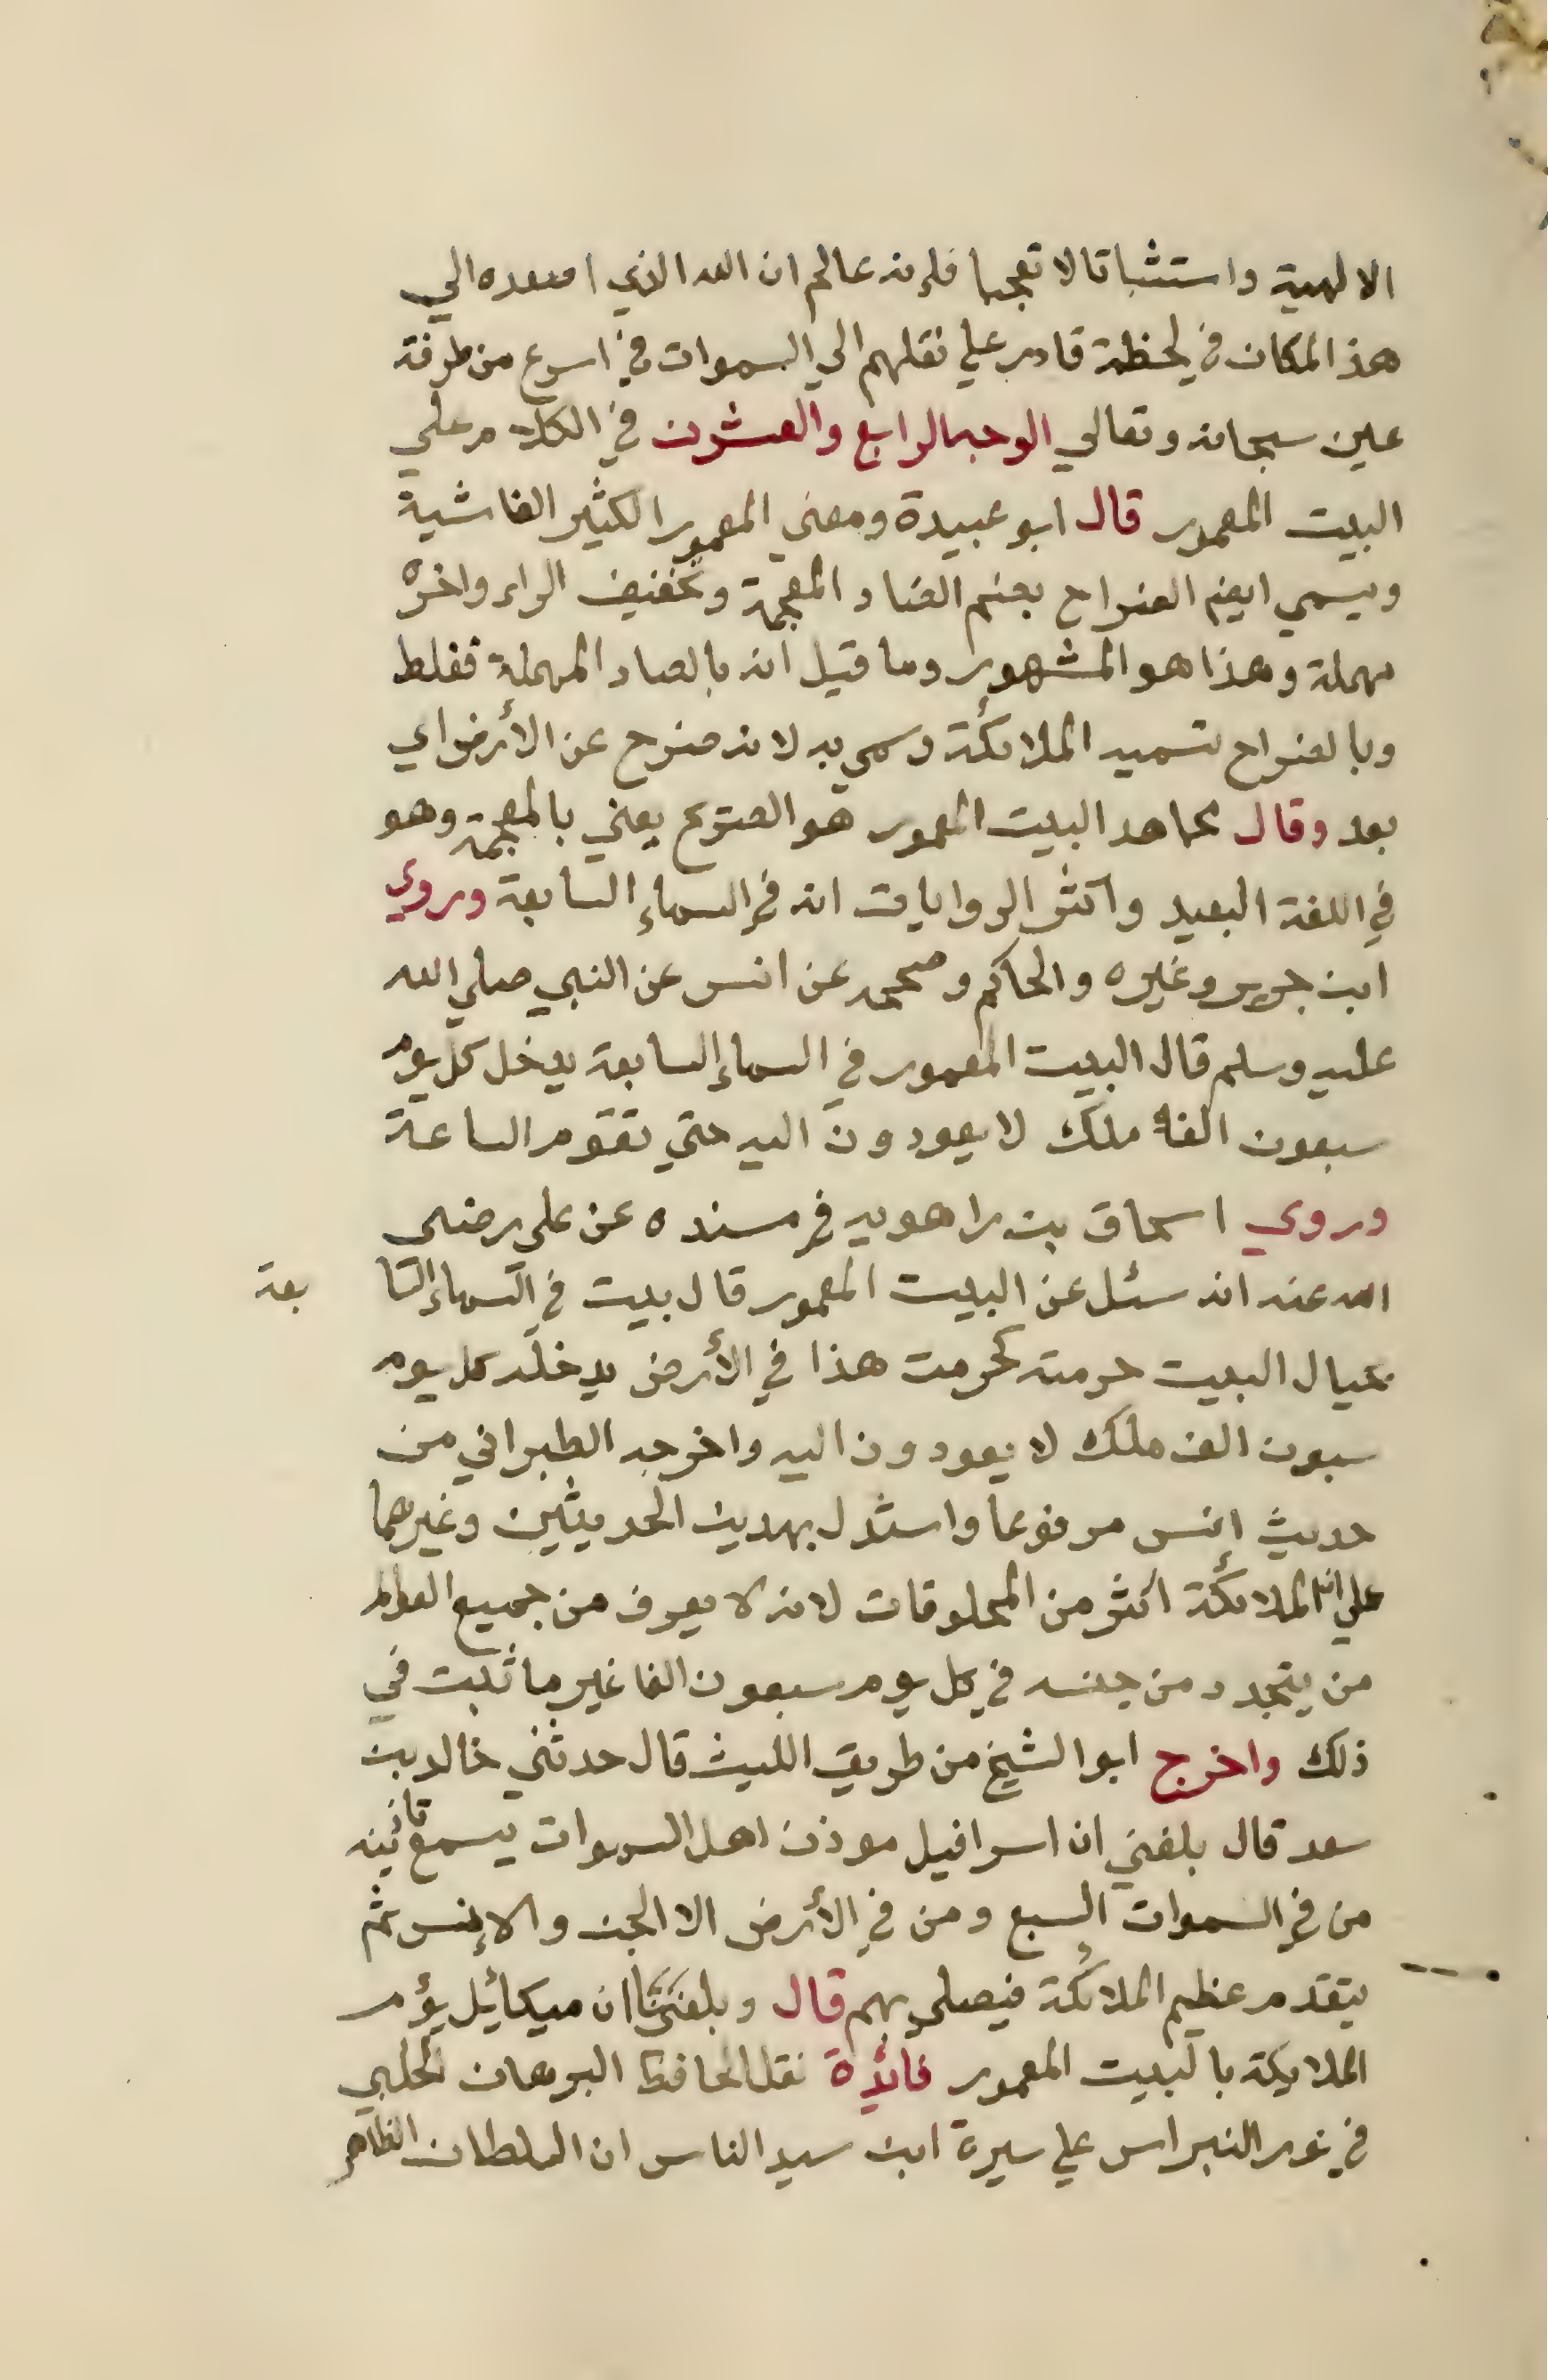 الالهية واستثباتا لا تعجبا فلإنه عالم ان الله الذي اصعده الي
هذ المكان في لحظة قادر علي نقلهم الي السموات في اسرع من طرفة
عين سبحانه وتعالي الوجه الرابع والعشرون في الكلام علي
البيت المعمور قال ابو عبيدة ومعني المعمور الكثير الغاشية
ويسمي ايضم الضراح بضم الضاد المعجمة وتخفيف الراء واخره
مهملة وهذا هو المشهور وما قيل انه بالصاد المهملة فغلط
وبالضراح تسميه الملائكة وسمي به لانه ضرح عن الأرض اي
بعد وقال مجاهد البيت المعمور هو الضريح يعني بالمعجمة وهو
في اللغة البعيد واكثر الروايات انه في السماء السابعة وروي
ابن جرير وغيره والحاكم وصححه عن انس عن النبي صلي الله
عليه وسلم قال البيت المعمور في السماء السابعة يدخل كل يوم
سبعون الف ملك لا يعودون اليه حتي تقوم الساعة
وروي اسحاق بن راهويه في مسنده عن علي رضي
الله عنه انه سئل عن البيت المعمور قال بيت في السماء السا بعة
بحيال البيت حرمته كحرمت هذا في الأرض يدخله كل يوم
سبون الف ملك لا يعودون اليه واخرجه الطبراني من
حديث إنس مرفوعا واستدل بهدين الحديثين وغيرهما
علي ان الملائكة اكثر من المخلوقات لانه لا يعرف من جميع العوالم
من يتجدد من جنسه في كل يوم سبعون الفا غير ما ثبت في
ذلك واخرج ابو الشيخ من طريق الليث قال حدثني خالد بن
سعد قال بلغني ان اسرافيل موذن اهل السموات يسمع تاذينه
من في السموات السبع ومن في الأرض الا الجن والإنس ثم
يتقدم عظيم الملائكة فيصلي بهم قال وبلغنا ان ميكائيل يؤم
الملايكة بالبيت المعمور فائدة نقل الحافظ البرهان الحلبي
في نور النبراس علي سيرة ابن سيد الناس ان السلطان الظاهر